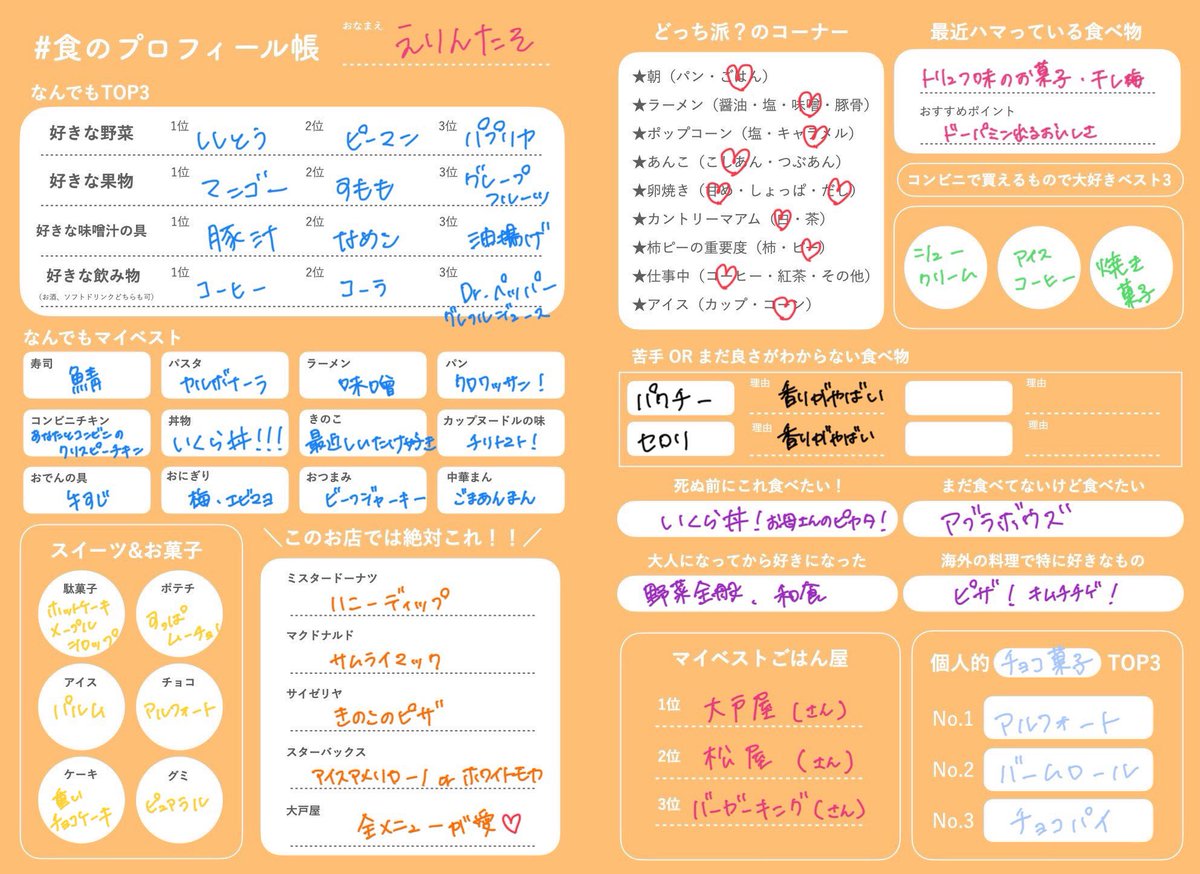 #食のプロフィール帳
おなまえ えりんたそ
なんでもTOP3
好きな野菜 1位 ししとう 2位 ピーマン 3位 パプリカ
好きな果物 1位 マンゴー 2位 すもも 3位 グレープフルーツ
好きな味噌汁の具 1位 豚汁 2位 なめこ 3位 油揚げ
好きな飲み物 1位 コーヒー 2位 コーラ 3位 Dr.ペッパー
(お酒、ソフトドリンクどちらも可) グレフルジュース
なんでもマイベスト
寿司 鯖
パスタ カルボナーラ
ラーメン 味噌
パン クロワッサン!
コンビニチキン あなたとコンビニの クリスピーチキン
丼物 いくら丼!!!
きのこ 最近しいたけ好き
カップヌードルの味 チリトマト!
おでんの具 牛すじ
おにぎり 梅・エビマヨ
おつまみ ビーフジャーキー
中華まん ごまあんまん
スイーツ&お菓子
駄菓子 ホットケーキ メープル シロップ
ポテチ すっぱ ムーチョ!
アイス パルム
チョコ アルフォート
ケーキ 重い チョコケーキ
グミ ピュアラル
＼このお店では絶対これ！！／
ミスタードーナツ
ハニーディップ
マクドナルド
サムライマック
サイゼリヤ
きのこのピザ
スターバックス
アイスアメリカーノ or ホワイトモカ
大戸屋
全メニューが愛♡
どっち派？のコーナー
★朝（パン・ごはん）
★ラーメン（醤油・塩・味噌・豚骨）
★ポップコーン（塩・キャラメル）
★あんこ（こしあん・つぶあん）
★卵焼き（甘め・しょっぱ・だし）
★カントリーマアム（白・茶）
★柿ピーの重要度（柿・ピー）
★仕事中（コーヒー・紅茶・その他）
★アイス（カップ・コーン）
最近ハマっている食べ物
トリュフ味のお菓子・干し梅
おすすめポイント
ドーパミン出るおいしさ
コンビニで買えるもので大好きベスト3
シュー クリーム
アイス コーヒー
焼き 菓子
苦手 OR まだ良さがわからない食べ物
パクチー 理由 香りがやばい 理由
セロリ 理由 香りがやばい 理由
死ぬ前にこれ食べたい！
いくら丼!お母さんのピカタ!
まだ食べてないけど食べたい
アブラボウズ
大人になってから好きになった
野菜全般、和食
海外の料理で特に好きなもの
ピザ! キムチチゲ!
マイベストごはん屋
1位 大戸屋(さん)
2位 松屋(さん)
3位 バーガーキング(さん)
個人的 チョコ菓子 TOP3
No.1 アルフォート
No.2 バームロール
No.3 チョコパイ